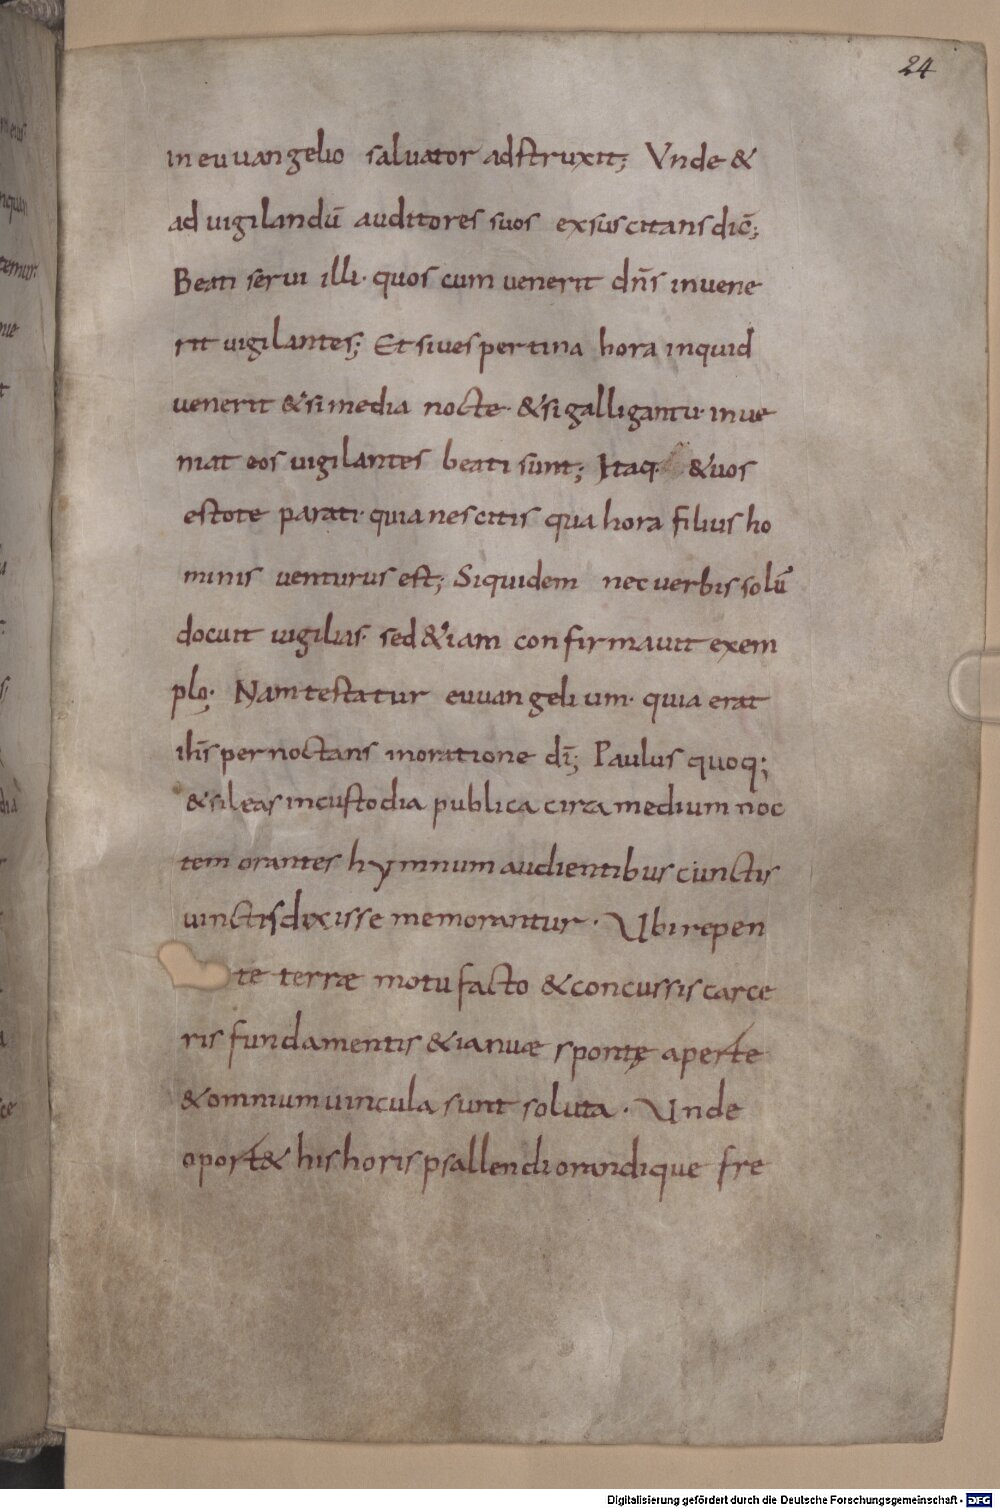 24
in euuangelio saluator adstruxit; Vnde &
ad uigilandū auditores suos exsuscitans dic̄;
Beati serui illi· quos cum uenerit dn̄s inuene
rit uigilantes; Et siuespertina hora inquid
uenerit & si media nocte· & si galligantu· inue
niat eos uigilantes beati sunt; Itaq· & uos
estote parati· quia nescitis qua hora filius ho
minis uenturus est; Siquidem nec uerbis solū
docuit uigilias· sed & iam confirmauit exem
plo· Nam testatur euuangelium· quia erat
ih̄s pernoctans inoratione dī; Paulus quoq;
& sileas incustodia publica circa medium noc
tem orantes hymnum audientibus cunctis
uinctis dixisse memorantur· Ubi repen
te terræ motu facto & concussis carce
ris fundamentis & ianuæ spontę aperte
& omnium uincula sunt soluta· Unde
oport& his horis psallendi orandique fre
Digitalisierung gefördert durch die Deutsche Forschungsgemeinschaft - DFG